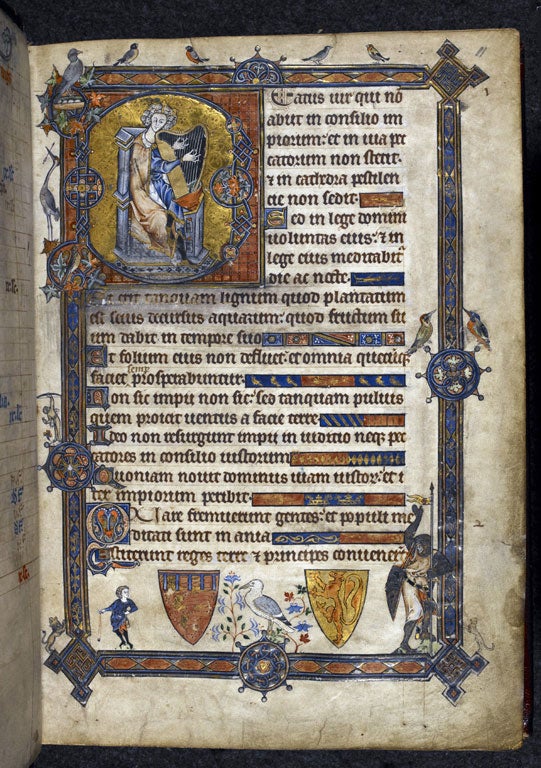 Eatus uir qui nō
abiit in consilio im
piorum: et in uia pec
catorum non stetit.
& in cathedra pestilen
cie non sedit.
Sed in lege domini
uoluntas eius: & in
lege eius meditabit᷑
die ac nocte.
Et erit tanquam lignum quod plantatum
est secus decursus aquarum: quod fructum su
um dabit in tempore suo
Et folium eius non defluet: et omnia quecūq;
semp
faciet prosperabuntur.
Non sic impii non sic: sed tanquam puluis
quem proicit uentus a facie terre.
Ideo non resurgunt impii in iuditio neq; pec
catores in consilio iustorum
Quoniam nouit dominus uiam iustor: et i
ter impiorum peribit.
Quare fremuerunt gentes: et populi me
ditati sunt in ania
Astiterunt reges terre & principes conuenert̄